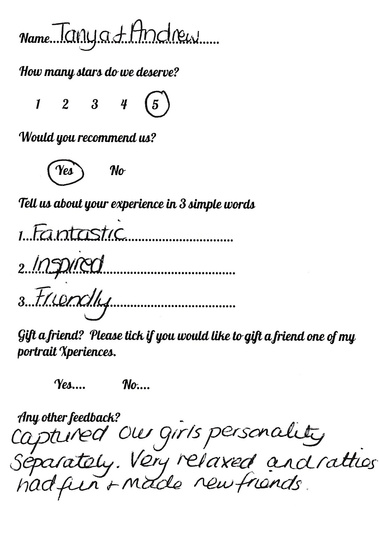 Name...Tanya + Andrew.....
How many stars do we deserve?
1 2 3 4 5
Would you recommend us?
Yes No
Tell us about your experience in 3 simple words
1...Fantastic...........................
2...Inspired................................
3...Friendly................................
Gift a friend? Please tick if you would like to gift a friend one of my
portrait Xperiences.
Yes.... No....
Any other feedback?
captured our girls personality
separately. Very relaxed and ratties
had fun + made new friends.